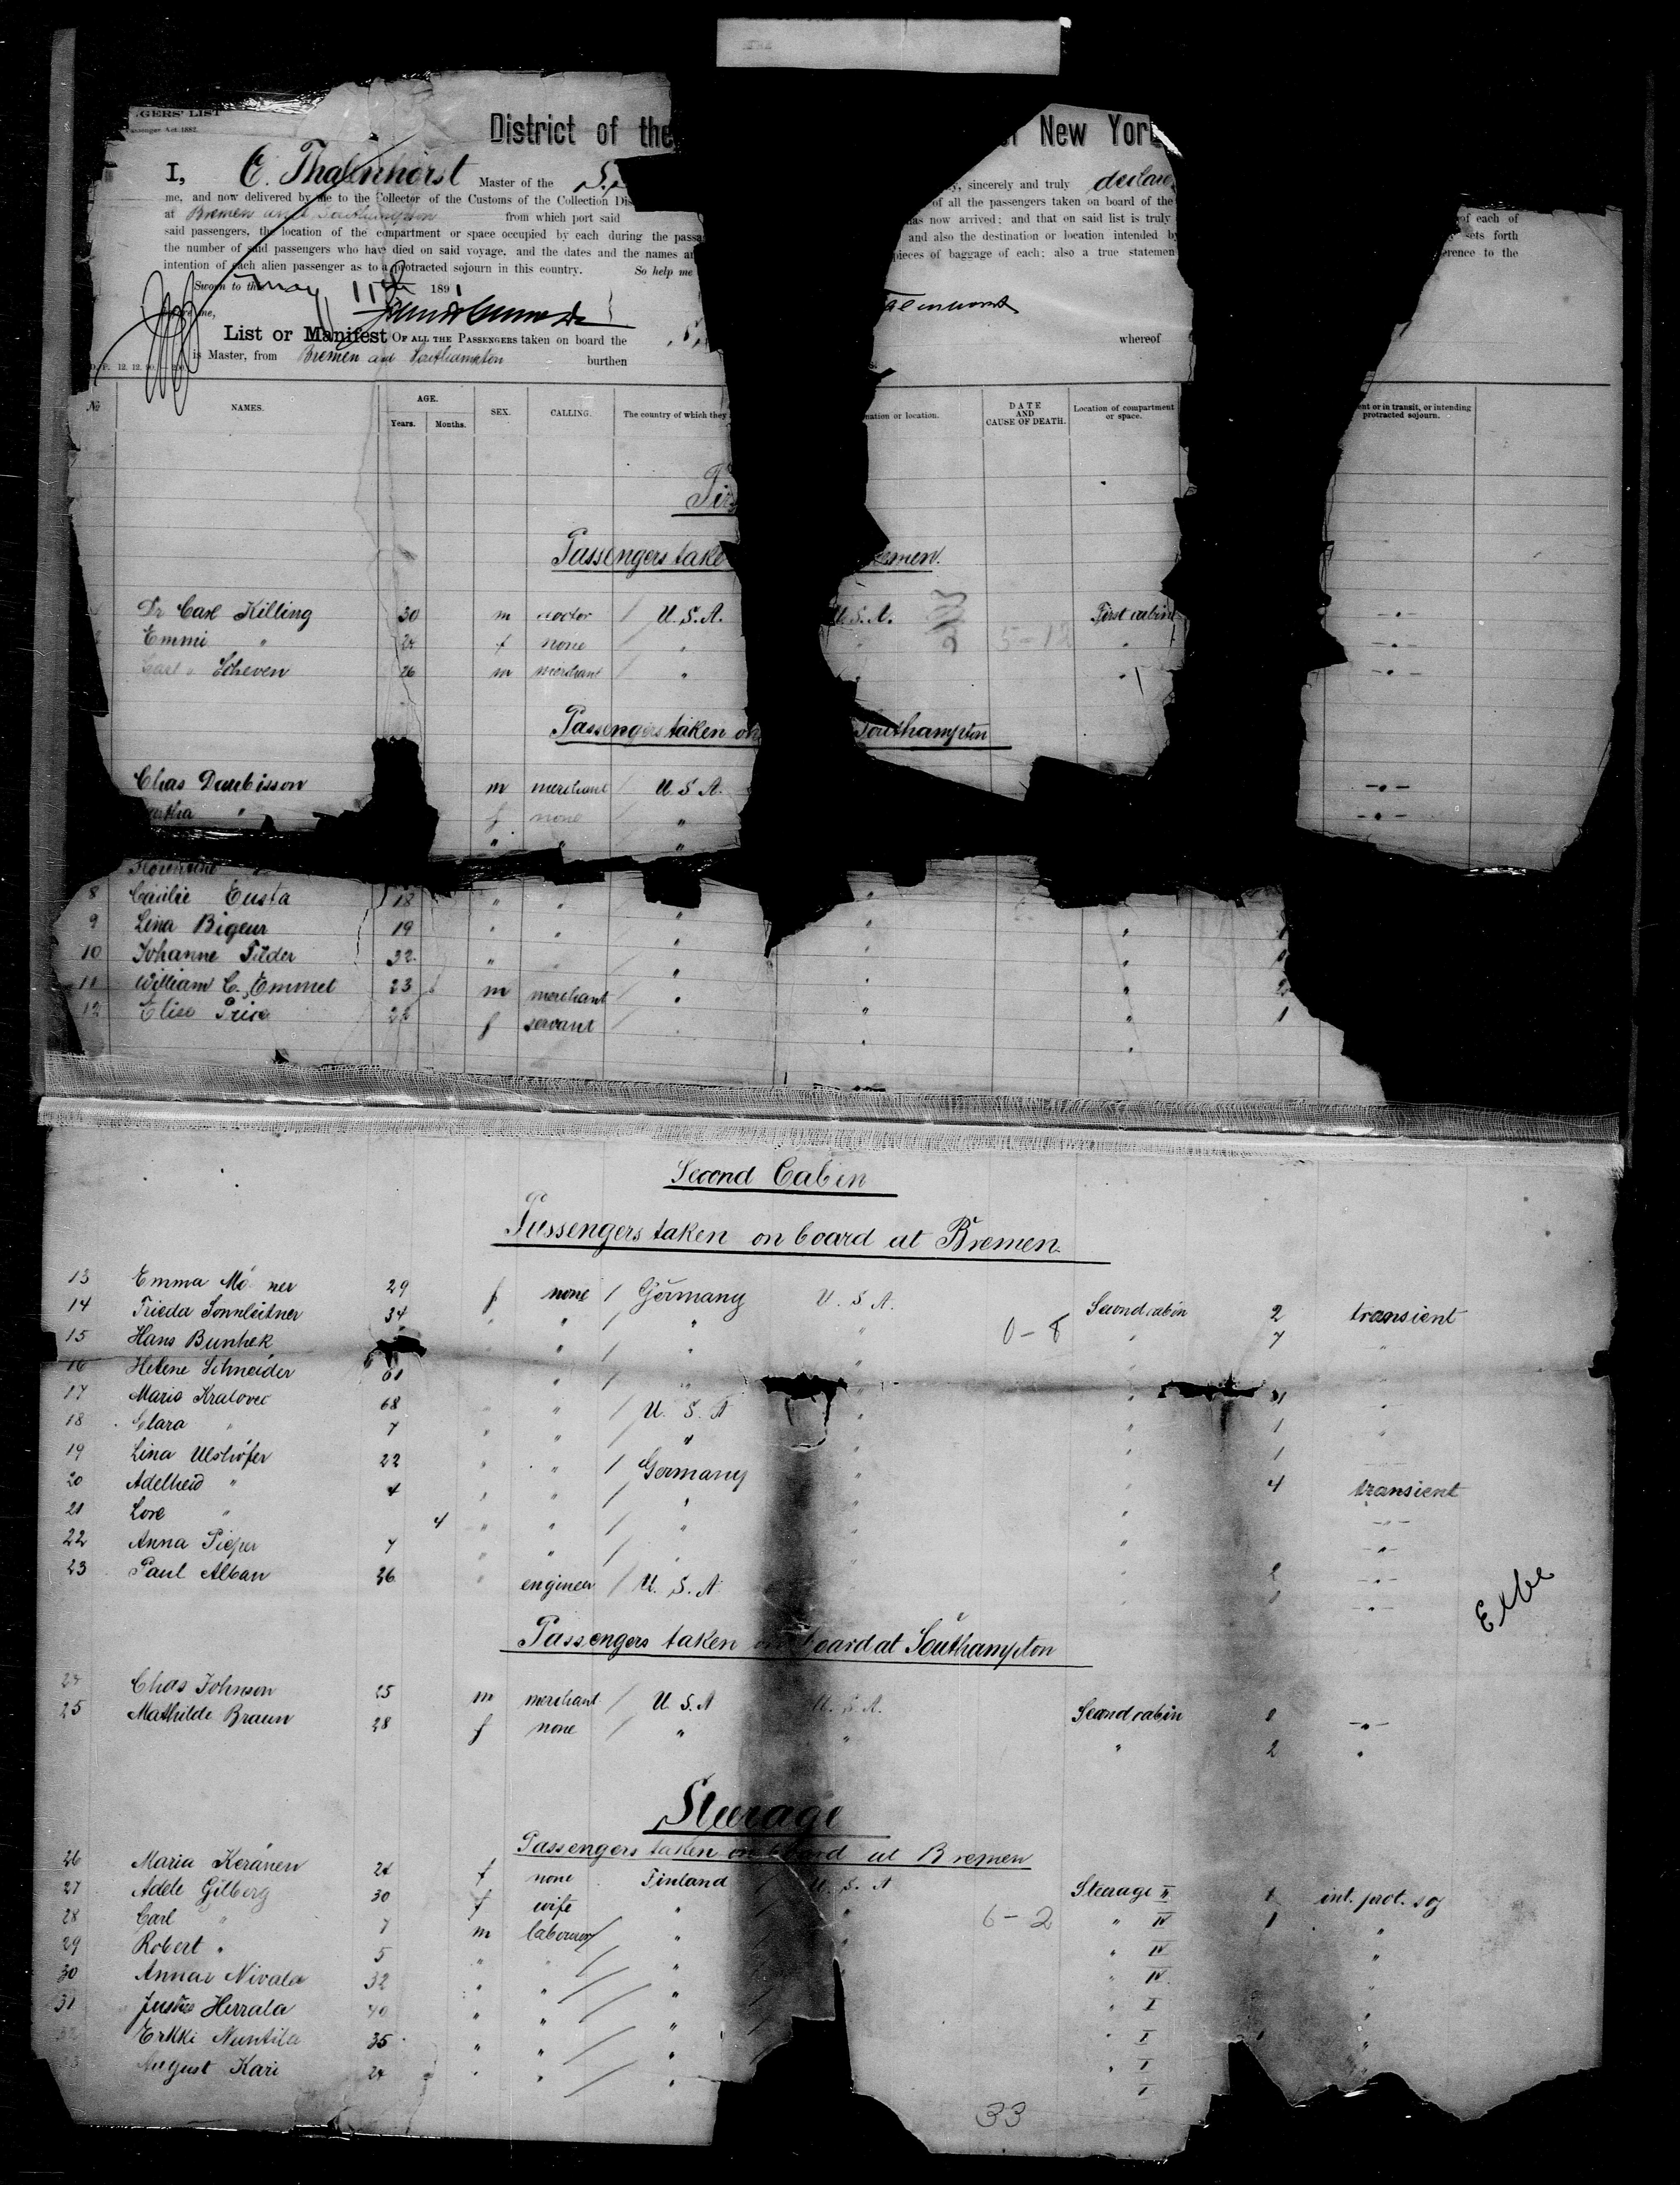 GERS' LIST
Passenger Act 1882.
District of the
New York
I, C. Thalenhorst Master of the S.S.
y, sincerely and truly declare
me, and now delivered by me to the Collector of the Customs of the Collection Dis
of all the passengers taken on board of the
at Bremen and Southampton from which port said
has now arrived; and that on said list is truly
of each of
said passengers, the location of the compartment or space occupied by each during the passa
and also the destination or location intended by
sets forth
the number of said passengers who have died on said voyage, and the dates and the names an
pieces of baggage of each: also a true statemen
erence to the
intention of each alien passenger as to a protracted sojourn in this country. So help me
Sworn to this May 11th 1891
before me,
List or Manifest OF ALL THE PASSENGERS taken on board the
whereof
is Master, from Bremen and Southampton burthen
No NAMES. AGE. Years. Months. SEX. CALLING. The country of which they
nation or location. DATE AND CAUSE OF DEATH. Location of compartment or space.
ent or in transit, or intending protracted sojourn.
Firs
Passengers take
emen.
Dr Carl Killing 30 m doctor / U.S.A. U.S.A. First cabin -"-
Emmi " 24 f none / " 5-12 " -"-
Carl Scheven 26 m merchant / " " -"-
Passengers taken on
Southampton
Chas Daubisson m merchant / U.S.A. -"-
" f none / " -"-
" " "
Florentine "
8 Cäcilie Eusta 18 " " / " "
9 Lina Bigeur 19 " " / " " " 1
10 Johanne Tilder 22 " " / " " "
11 William C. Emmet 23 m merchant / " " " 2
12 Elise Price f servant / " " " 1
Second Cabin
Passengers taken on board at Bremen.
13 Emma Mö ner 29 f none / Germany U.S.A. Second cabin 2 transient
14 Frieda Sonnleitner 34 " " / " " 0-8 " 7 "
15 Hans Bunhek " /
16 Helene Schneider 61 " / " " 1
17 Maria Kralovec 68 " " / U.S.A " " 1 "
18 Clara " 7 " " / " " 1
19 Lina Ulshöfer 22 " " / Germany " " 4 transient
20 Adelheid " 4 " " / " " -"-
21 Lore " 4 " " / " " -"-
22 Anna Pieper 7 " " / " " -"-
23 Paul Alban 36 " engineer / U.S.A. " -"-
Elbe
Passengers taken on board at Southampton
24 Chas Johnson 25 m merchant / U.S.A U.S.A. Second cabin 1 -"-
25 Mathilde Braun 28 f none / " " " 2 "
Steerage
Passengers taken on board at Bremen
26 Maria Keränen 24 f none Finland / U.S.A Steerage II 1 int. prot. soj
27 Adele Gilberg 30 f wife " / " 6-2 " IV 1 "
28 Carl " 7 m labourer / " " " IV "
29 Robert " 5 " " / " " " IV. "
30 Annar Nivala 32 " " / " " I "
31 Justus Herrala 40 " " / " " I "
32 Erkki Nuntila 35 " " / " " I "
33 August Kari 24 " " / " I
33